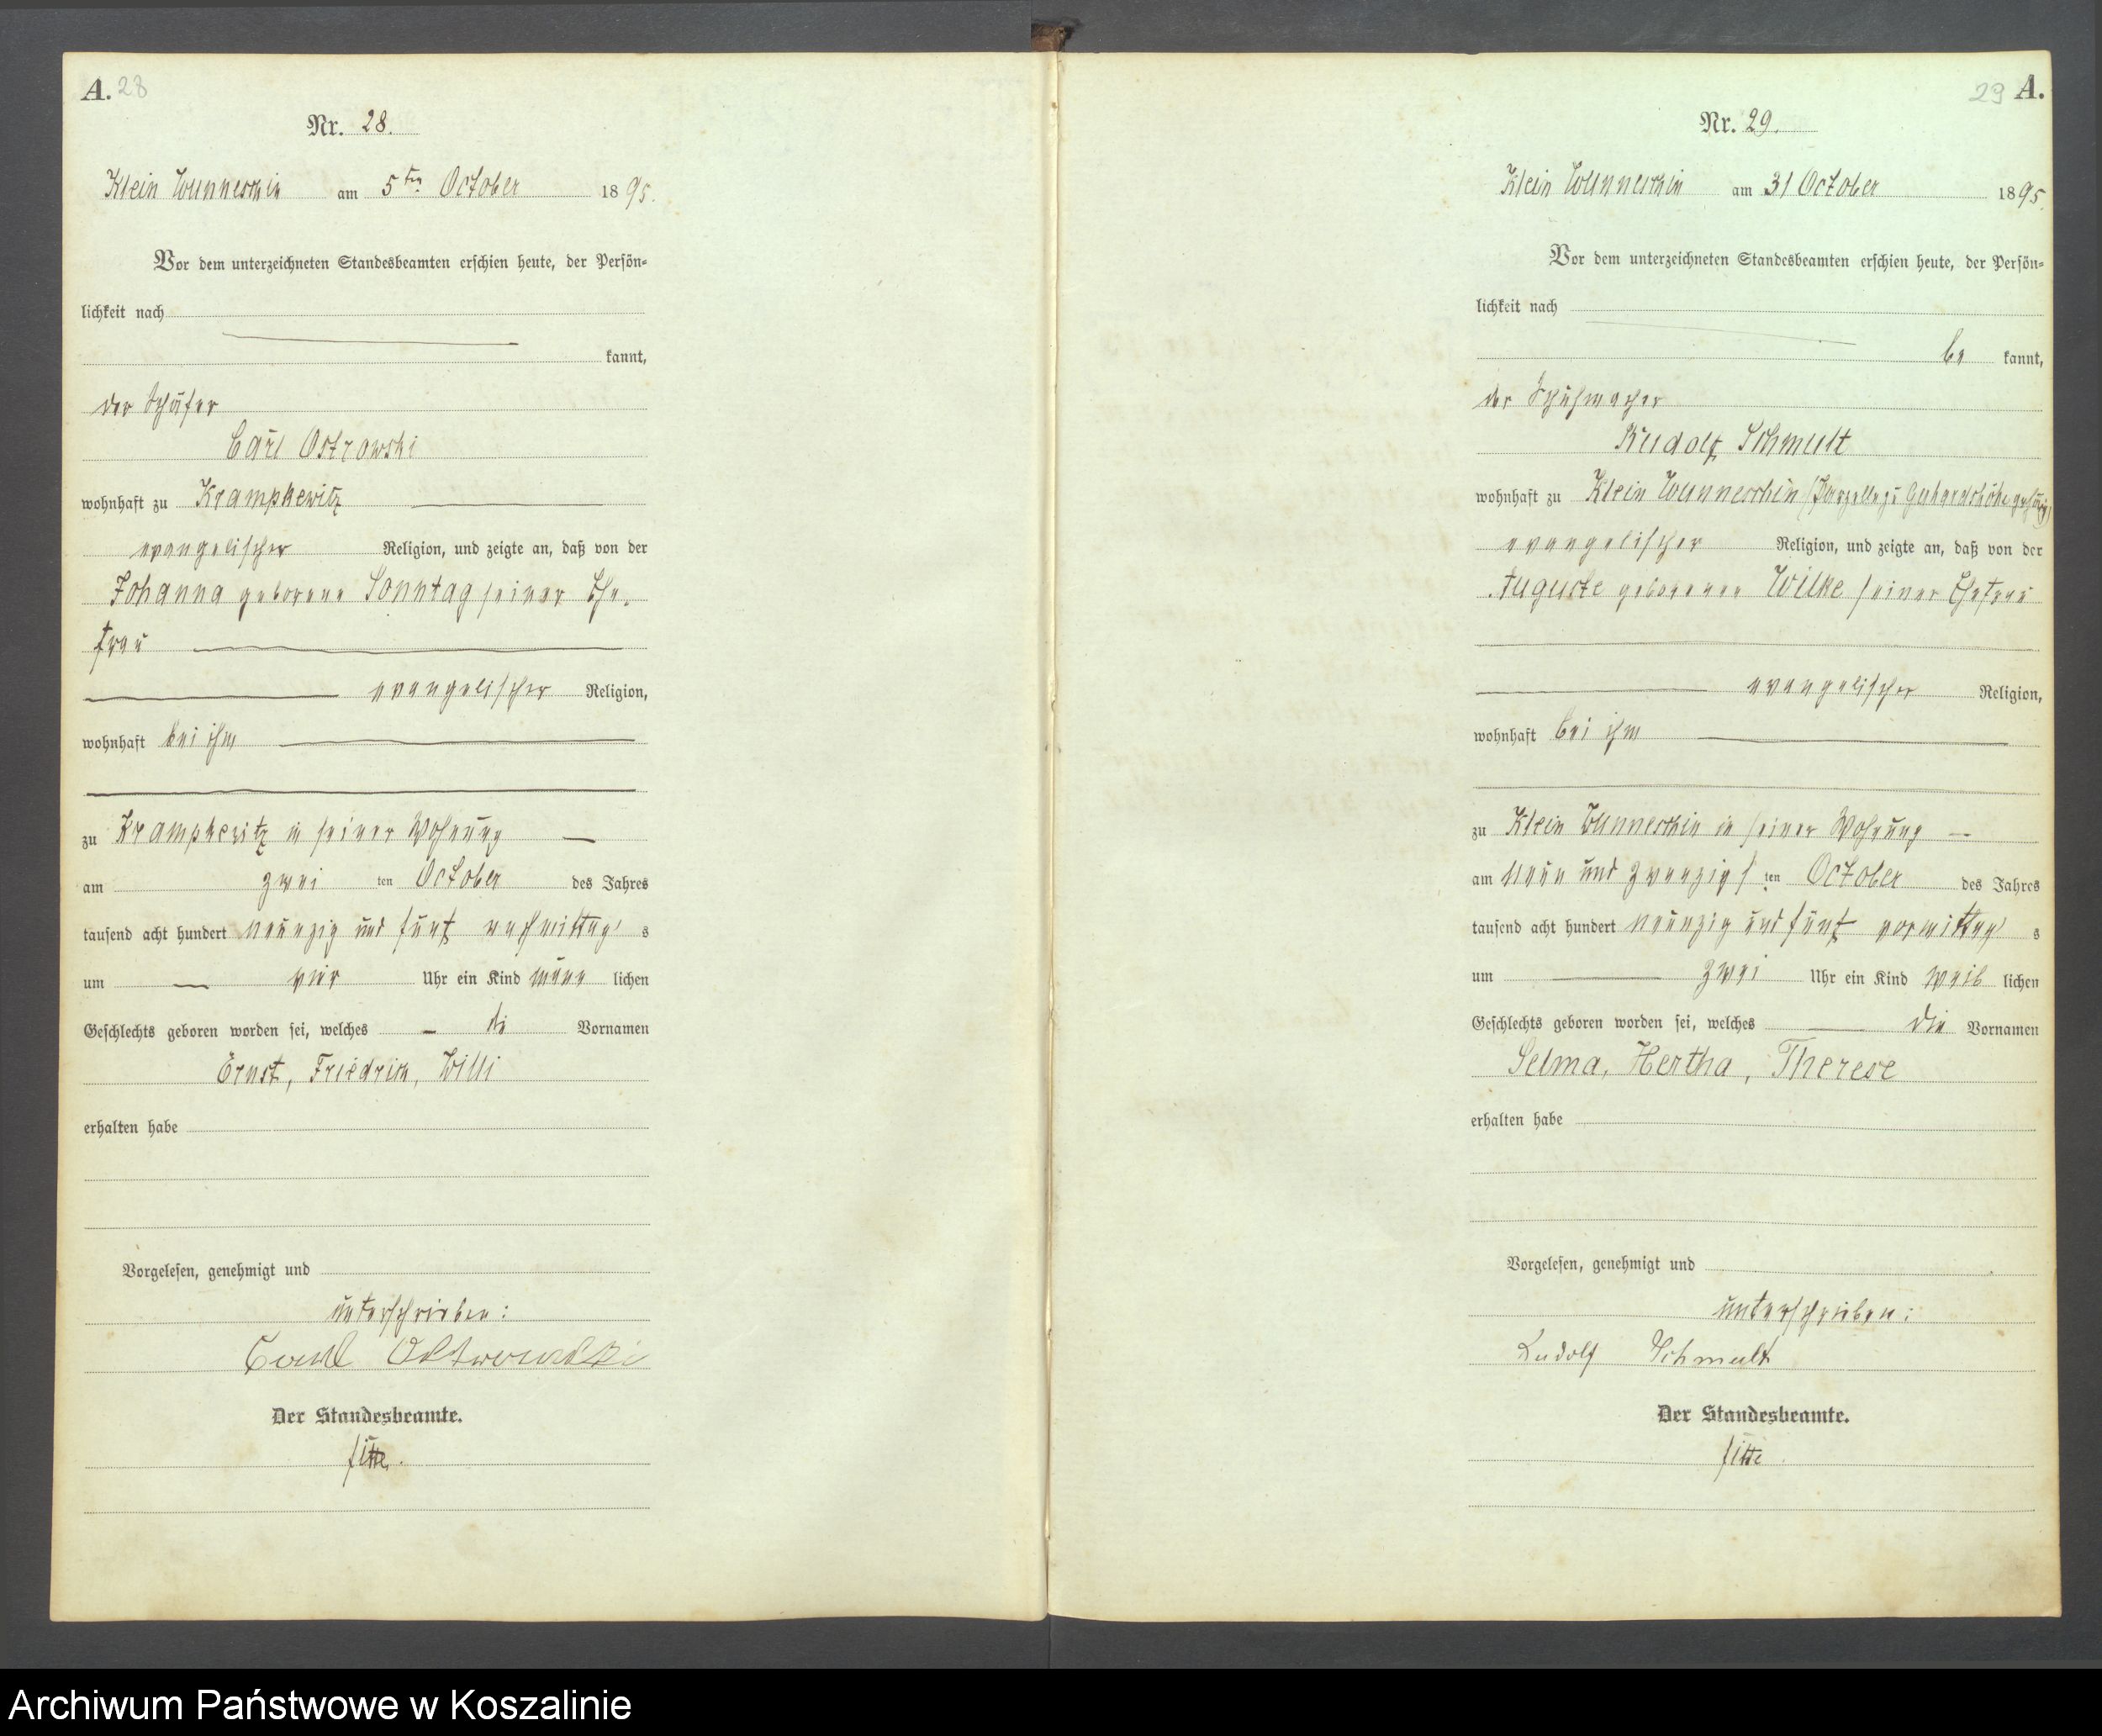 A. 28
Nr. 28.
Klein Wunneschin am 5ten October 1895.
Vor dem unterzeichneten Standesbeamten erschien heute, der Persön-
lichkeit nach
kannt,
der Schäfer
Carl Ostrowski
wohnhaft zu Krampkewitz
evangelischer Religion, und zeigte an, daß von der
Johanna geborene Sonntag seiner Ehe-
frau
evangelischer Religion,
wohnhaft bei ihm
zu Krampkewitz in seiner Wohnung
am zwei ten October des Jahres
tausend acht hundert neunzig und fünf nachmittag s
um vier Uhr ein Kind männ lichen
Geschlechts geboren worden sei, welches die Vornamen
Ernst, Friedrich, Willi
erhalten habe
Vorgelesen, genehmigt und
unterschrieben:
Carl Ostrowski
Der Standesbeamte.
29 A.
Nr. 29.
Klein Wunneschin am 31 October 1895.
Vor dem unterzeichneten Standesbeamten erschien heute, der Persön-
lichkeit nach
be kannt,
der Schuhmacher
Rudolf Schmult
wohnhaft zu Klein Wunneschin (Parzelle zu Gerhardshöhe gehörig)
evangelischer Religion, und zeigte an, daß von der
Auguste geborenen Wilke seiner Ehefrau
evangelischer Religion,
wohnhaft bei ihm
zu Klein Wunneschin in seiner Wohnung
am neun und zwanzigs ten October des Jahres
tausend acht hundert neunzig und fünf vormittag s
um zwei Uhr ein Kind weib lichen
Geschlechts geboren worden sei, welches die Vornamen
Selma, Hertha, Therese
erhalten habe
Vorgelesen, genehmigt und
unterschrieben:
Rudolf Schmult
Der Standesbeamte.
Archiwum Państwowe w Koszalinie